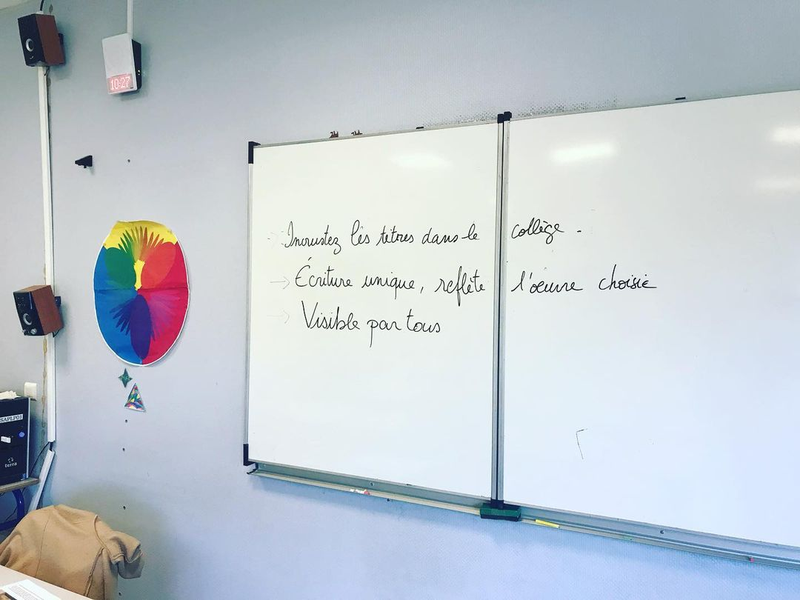 10:27
Incrustez les titres dans le collège.
→ Écriture unique, reflète l'œuvre choisie
→ Visible par tous
terra